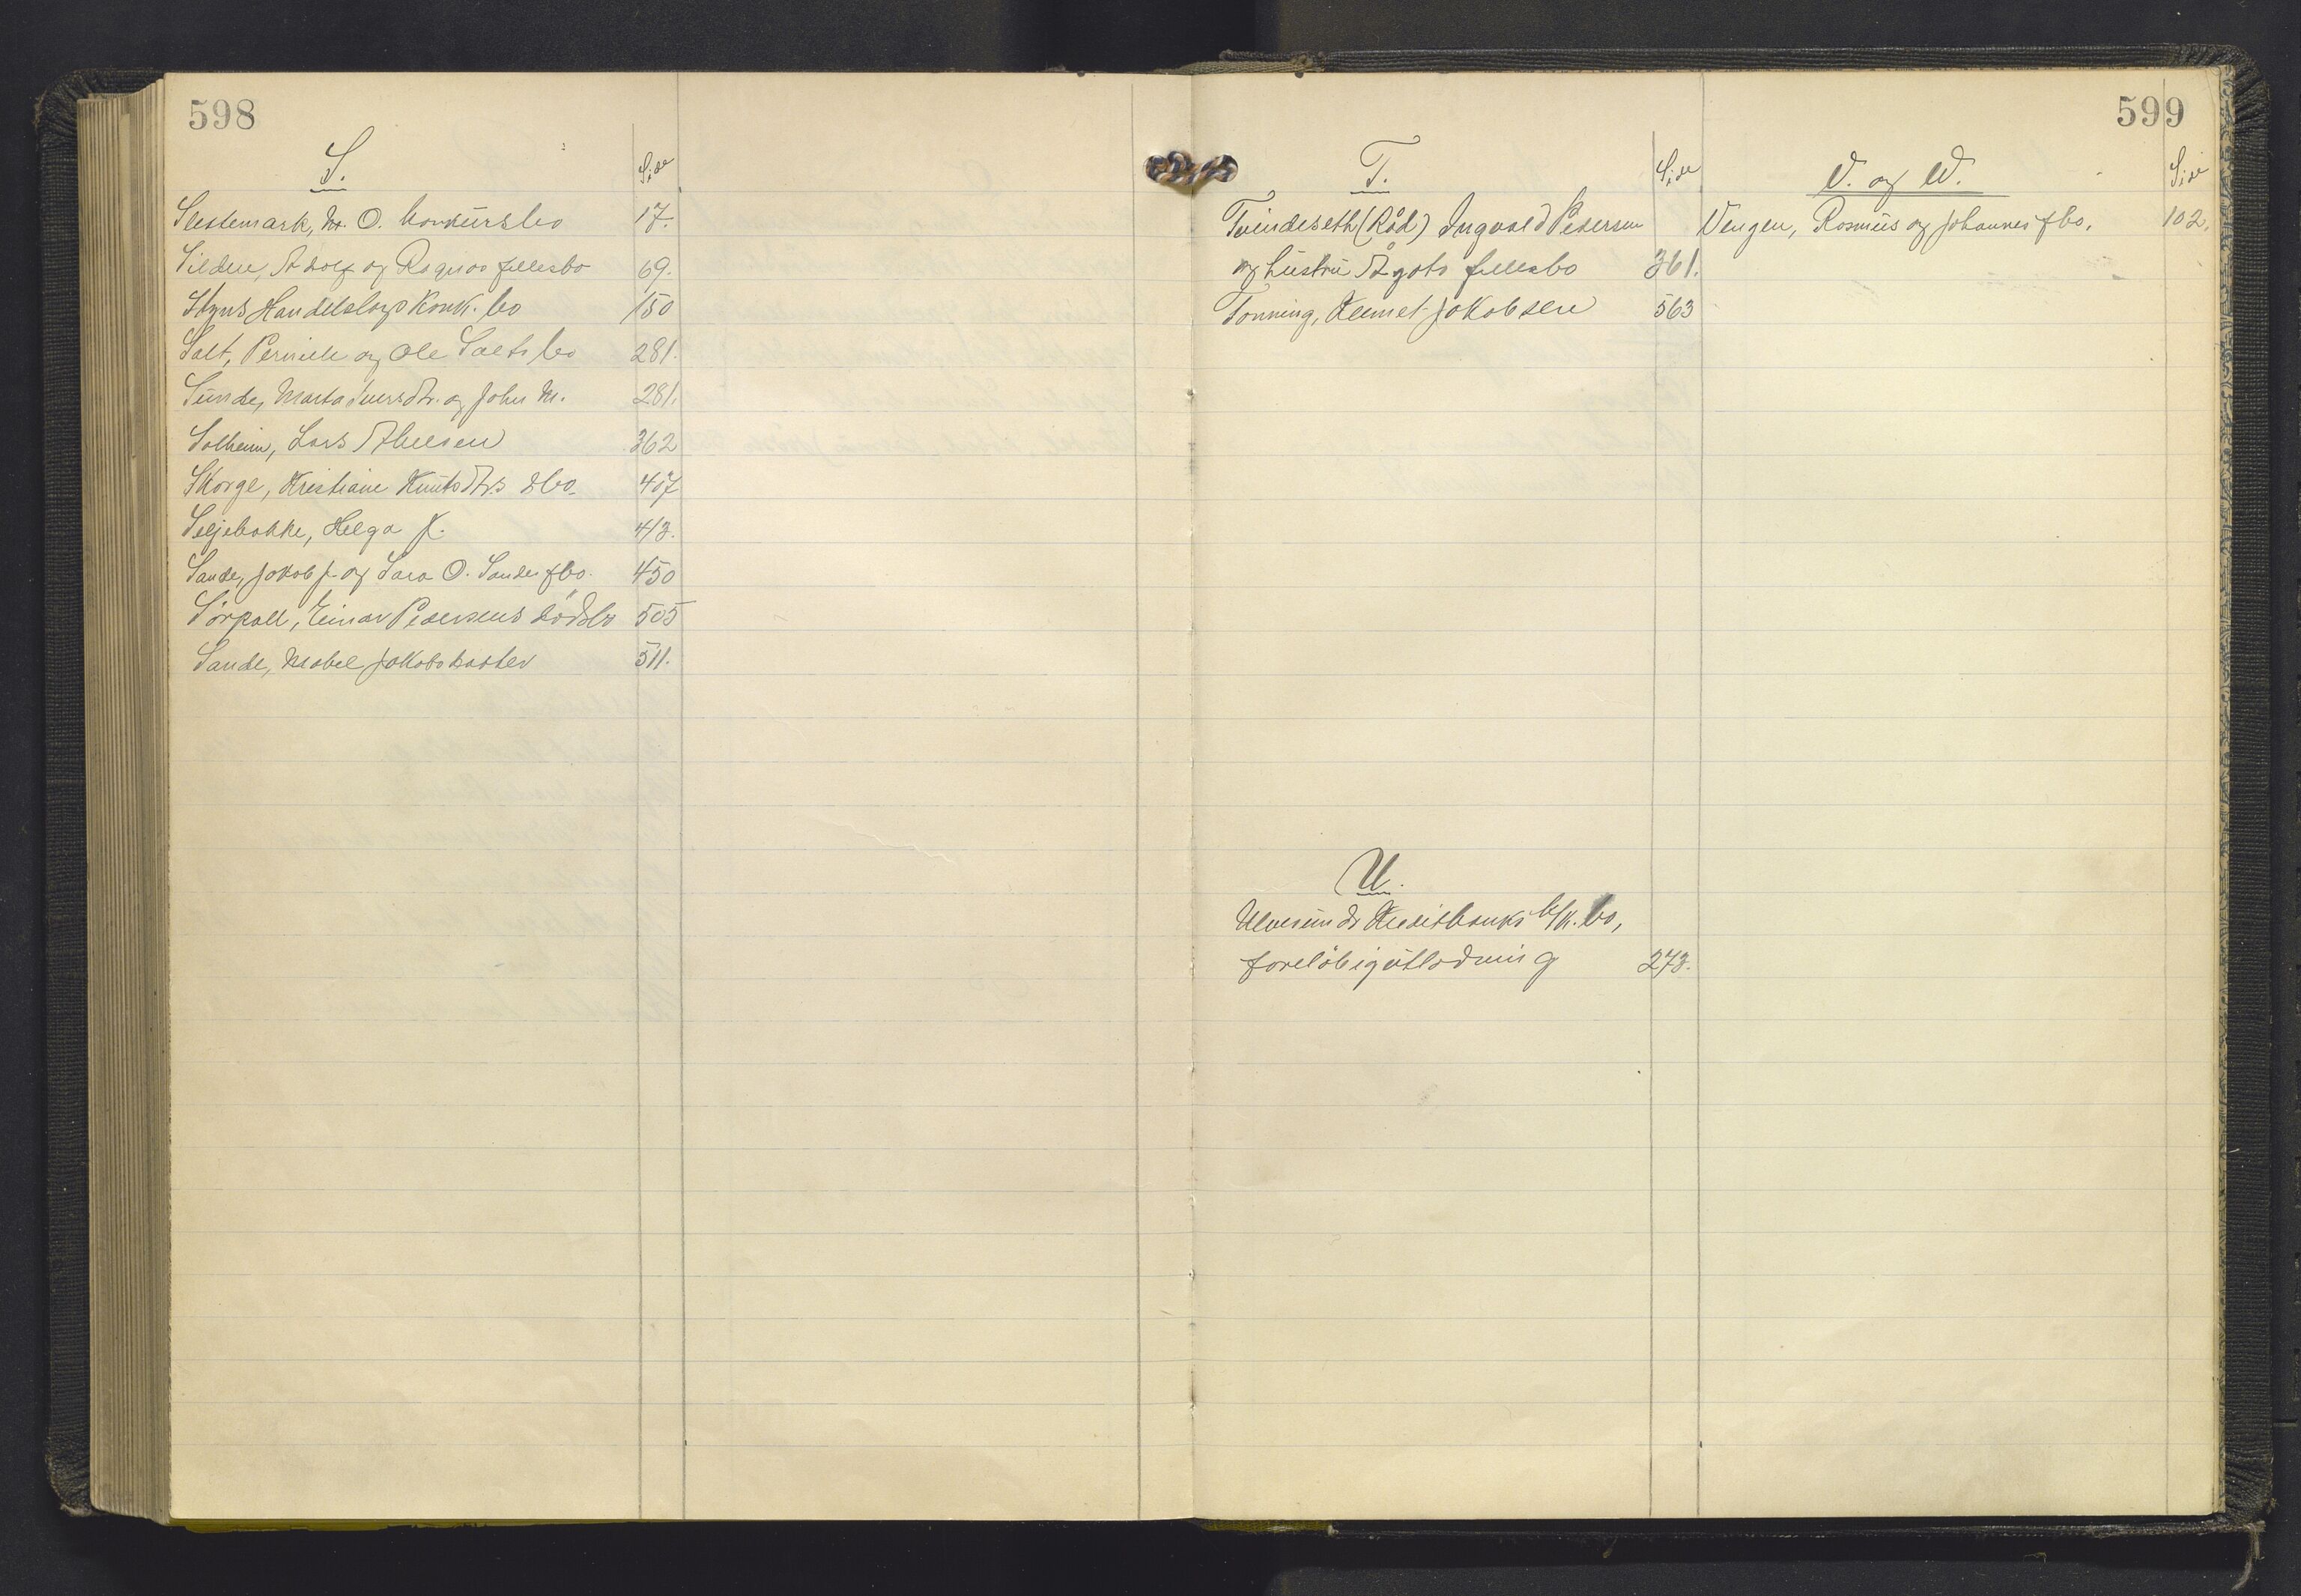 598
S.
Side
Slestemark, M. O. konkursbo 17.
Silden, Adolf og Ragnas fellesbo 69.
Stryns Handelslags Konk. bo 150
Salt, Pernille og Ole Salts bo 281.
Sunde, Marta Iversdtr. og John M. 281.
Solheim, Lars Abelsen 362
Skorge, Kristiane Knutsdtrs dbo. 407
Seljebakke, Helga K. 413.
Sande, Jakob J. og Sara O. Sandes fbo. 450
Sørpoll, Einar Pedersens dødsbo 505
Sande, Mabel Jakobsdatter 511.
599
T.
Side
Tvindeseth (Råd) Ingvald Petersen
og hustru Ågots fellesbo 361.
Tonning, Klemet Jakobsen 563
U.
Ulvesunds Kreditbanks k. bo,
foreløbig utlodning 273.
V. og W.
Side
Vengen, Rasmus og Johannes fbo. 102.